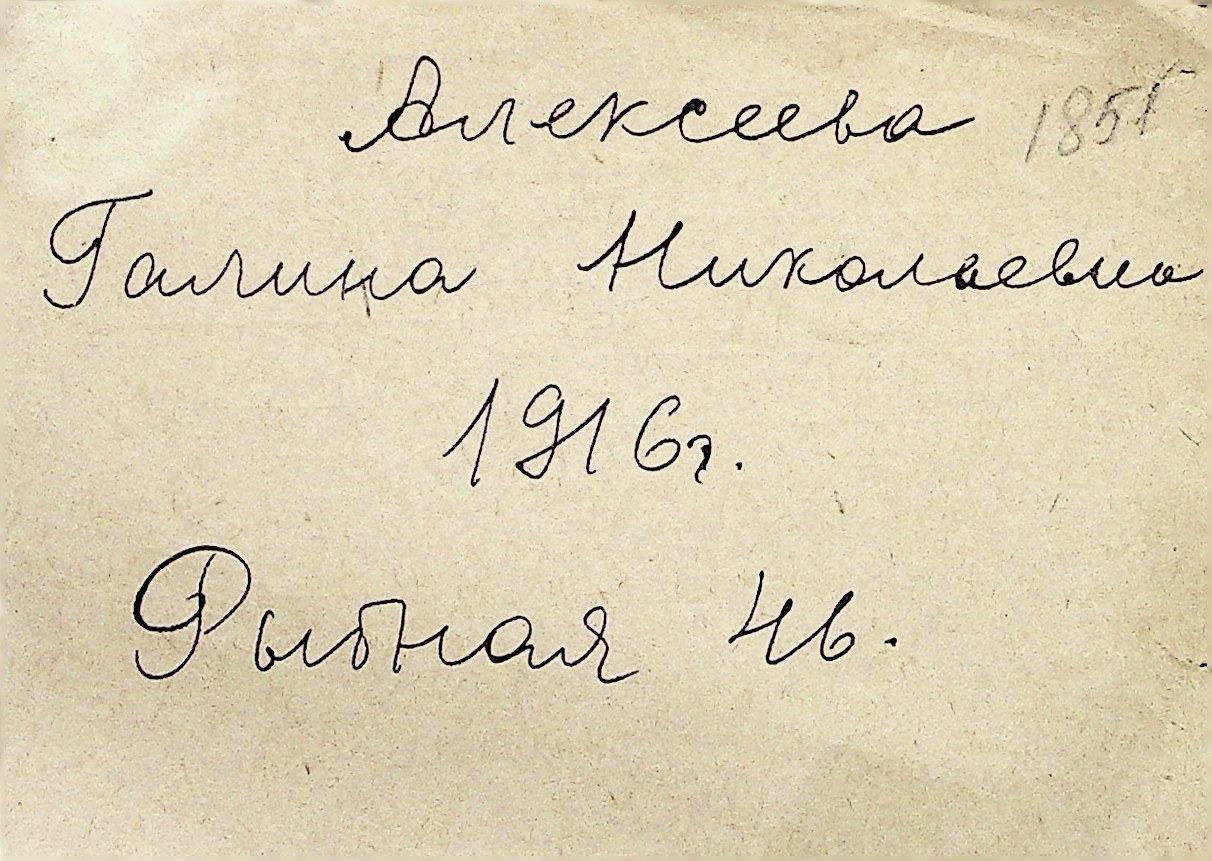 Алексеева 1851
Галина Николаевна
1916г.
Рыбная 46.